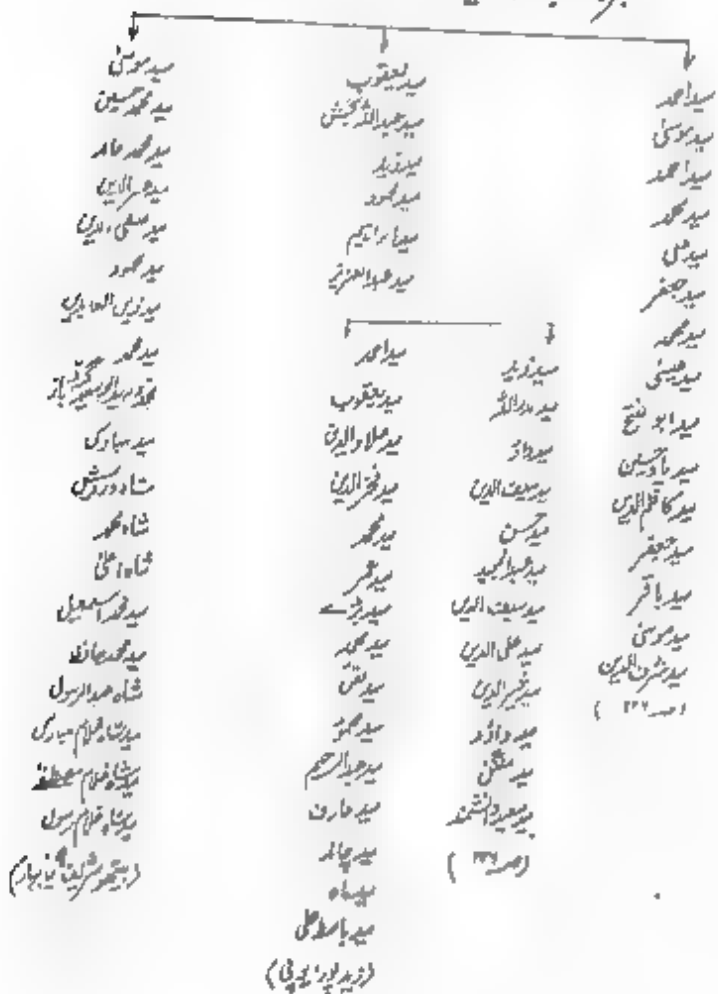 سید احمد
سید موسیٰ
سید احمد
سید محمد
سید علی
سید جعفر
سید محمد
سید عیسیٰ
سید ابو فتح
سید یاد حسین
سید کاظم الدین
سید جعفر
سید باقر
سید موسیٰ
سید شرف الدین
سید یعقوب
سید عبداللہ بخش
سید زید
سید محمود
سید ابراہیم
سید عبدالعزیز
سید زید
سید
سید داؤ
سید سیف الدین
سید حسن
سید عبدالحمید
سید سیف الدین
سید علی الدین
سید داؤد
سید
سید سعید دانشمند
سید احمد
سید یعقوب
سید علاؤ الدین
سید فخر الدین
سید محمد
سید قمر
سید بڑے
سید محمد
سید تقی
سید حمزہ
سید عبدالرحیم
سید عارف
سید چاند
سید باسط علی
(زید پور یوپی)
سید موسیٰ
سید محمد حسین
سید محمد حامد
سید
سید صفی الدین
سید محمود
سید زین العابدین
سید محمد
سید مبارک
شاہ درویش
شاہ محمد
شاہ اعلیٰ
سید محمد اسمٰعیل
سید محمد حافظ
شاہ عبدالرسول
سید شاہ غلام مبارک
سید شاہ غلام مصطفٰے
سید شاہ غلام رسول
(بیتھو شریف گیا بہار)